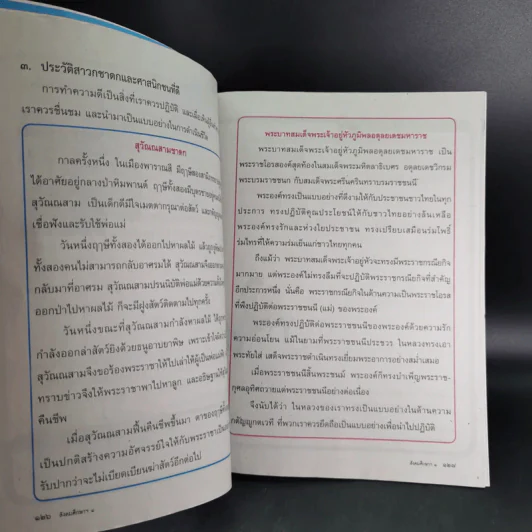 ๓. ประวัติสาวกชาดกและศาสนิกชนที่ดี
การทำความดีเป็นสิ่งที่เราควรปฏิบัติ และเมื่อเห็นผู้อื่น
เราควรชื่นชม และนำมาเป็นแบบอย่างในการดำเนินชีวิต
สุวัณณสามชาดก
กาลครั้งหนึ่ง ในเมืองพาราณสี มีฤๅษีสองสามี
ได้อาศัยอยู่กลางป่าหิมพานต์ ฤๅษีทั้งสองมีบุตรชาย
สุวัณณสาม เป็นเด็กดีมีใจเมตตากรุณาต่อสัตว์
เชื่อฟังและรับใช้พ่อแม่
วันหนึ่งฤๅษีทั้งสองได้ออกไปหาผลไม้
ทั้งสองคนไม่สามารถกลับอาศรมได้ สุวัณณสามจึงออก
กลับมาที่อาศรม สุวัณณสามปรนนิบัติพ่อแม่ด้วยความ
ออกป่าไปหาผลไม้ ก็จะมีฝูงสัตว์ติดตามไปทุกครั้ง
วันหนึ่งขณะที่สุวัณณสามกำลังหาผลไม้
กำลังออกล่าสัตว์ยิงด้วยธนูอาบยาพิษ เพราะเข้าใจผิด
สุวัณณสามจึงขอร้องพระราชาให้ไปเล่าให้ผู้เป็นพ่อแม่
ทราบข่าวจึงให้พระราชาพาไปหาลูก และอธิษฐาน
คืนชีพ
เมื่อสุวัณณสามฟื้นคืนชีพขึ้นมา ตาของ
เป็นปกติสร้างความอัศจรรย์ใจให้กับพระราชา
รับปากว่าจะไม่เบียดเบียนฆ่าสัตว์อีกต่อไป
๑๒๖ สังคมศึกษาฯ ๑
พระบาทสมเด็จพระเจ้าอยู่หัวภูมิพลอดุลยเดชมหาราช
พระบาทสมเด็จพระเจ้าอยู่หัวภูมิพลอดุลยเดชมหาราช เป็น
พระราชโอรสองค์สุดท้องในสมเด็จพระมหิตลาธิเบศร อดุลยเดชวิกรม
พระบรมราชชนก กับสมเด็จพระศรีนครินทราบรมราชชนนี
พระองค์ทรงเป็นแบบอย่างที่ดีงามให้กับประชาชนชาวไทยในทุก
ประการ ทรงปฏิบัติคุณประโยชน์ให้กับชาวไทยอย่างล้นเหลือ
พระองค์ทรงรักและห่วงใยประชาชน ทรงเปรียบเสมือนร่มโพธิ์
ร่มไทรที่ให้ความร่มเย็นแก่ชาวไทยทุกคน
ถึงแม้ว่า พระบาทสมเด็จพระเจ้าอยู่หัวจะทรงมีพระราชกรณียกิจ
มากมาย แต่พระองค์ไม่ทรงลืมที่จะปฏิบัติพระราชกรณียกิจที่สำคัญ
อีกประการหนึ่ง นั่นคือ พระราชกรณียกิจในด้านความเป็นพระราชโอรส
ที่พึงปฏิบัติต่อพระราชชนนี (แม่) ของพระองค์
พระองค์ทรงปฏิบัติต่อพระราชชนนีของพระองค์ด้วยความรัก
ความอ่อนโยน แม้ในยามที่พระราชชนนีประชวร ในหลวงทรงเอา
พระทัยใส่ เสด็จพระราชดำเนินทรงเยี่ยมพระอาการอย่างสม่ำเสมอ
เมื่อพระราชชนนีสิ้นพระชนม์ พระองค์ก็ทรงบำเพ็ญพระราช-
กุศลอุทิศถวายแด่พระราชชนนีอย่างต่อเนื่อง
จึงนับได้ว่า ในหลวงของเราทรงเป็นแบบอย่างในด้านความ
กตัญญูกตเวที ที่พวกเราควรยึดถือเป็นแบบอย่างเพื่อนำไปปฏิบัติ
สังคมศึกษาฯ ๑ ๑๒๗